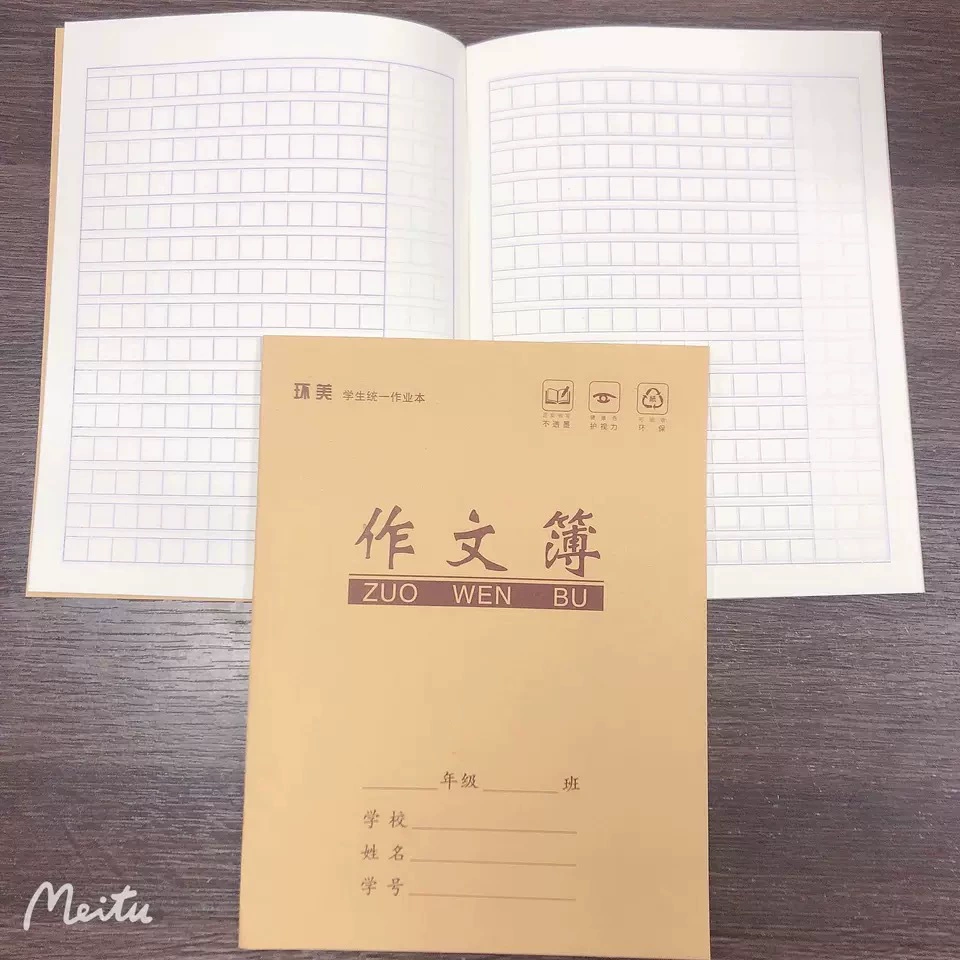 环美 学生统一作业本
不透墨 护视力 环保
作文簿
ZUO WEN BU
年级 班
学校
姓名
学号
Meitu